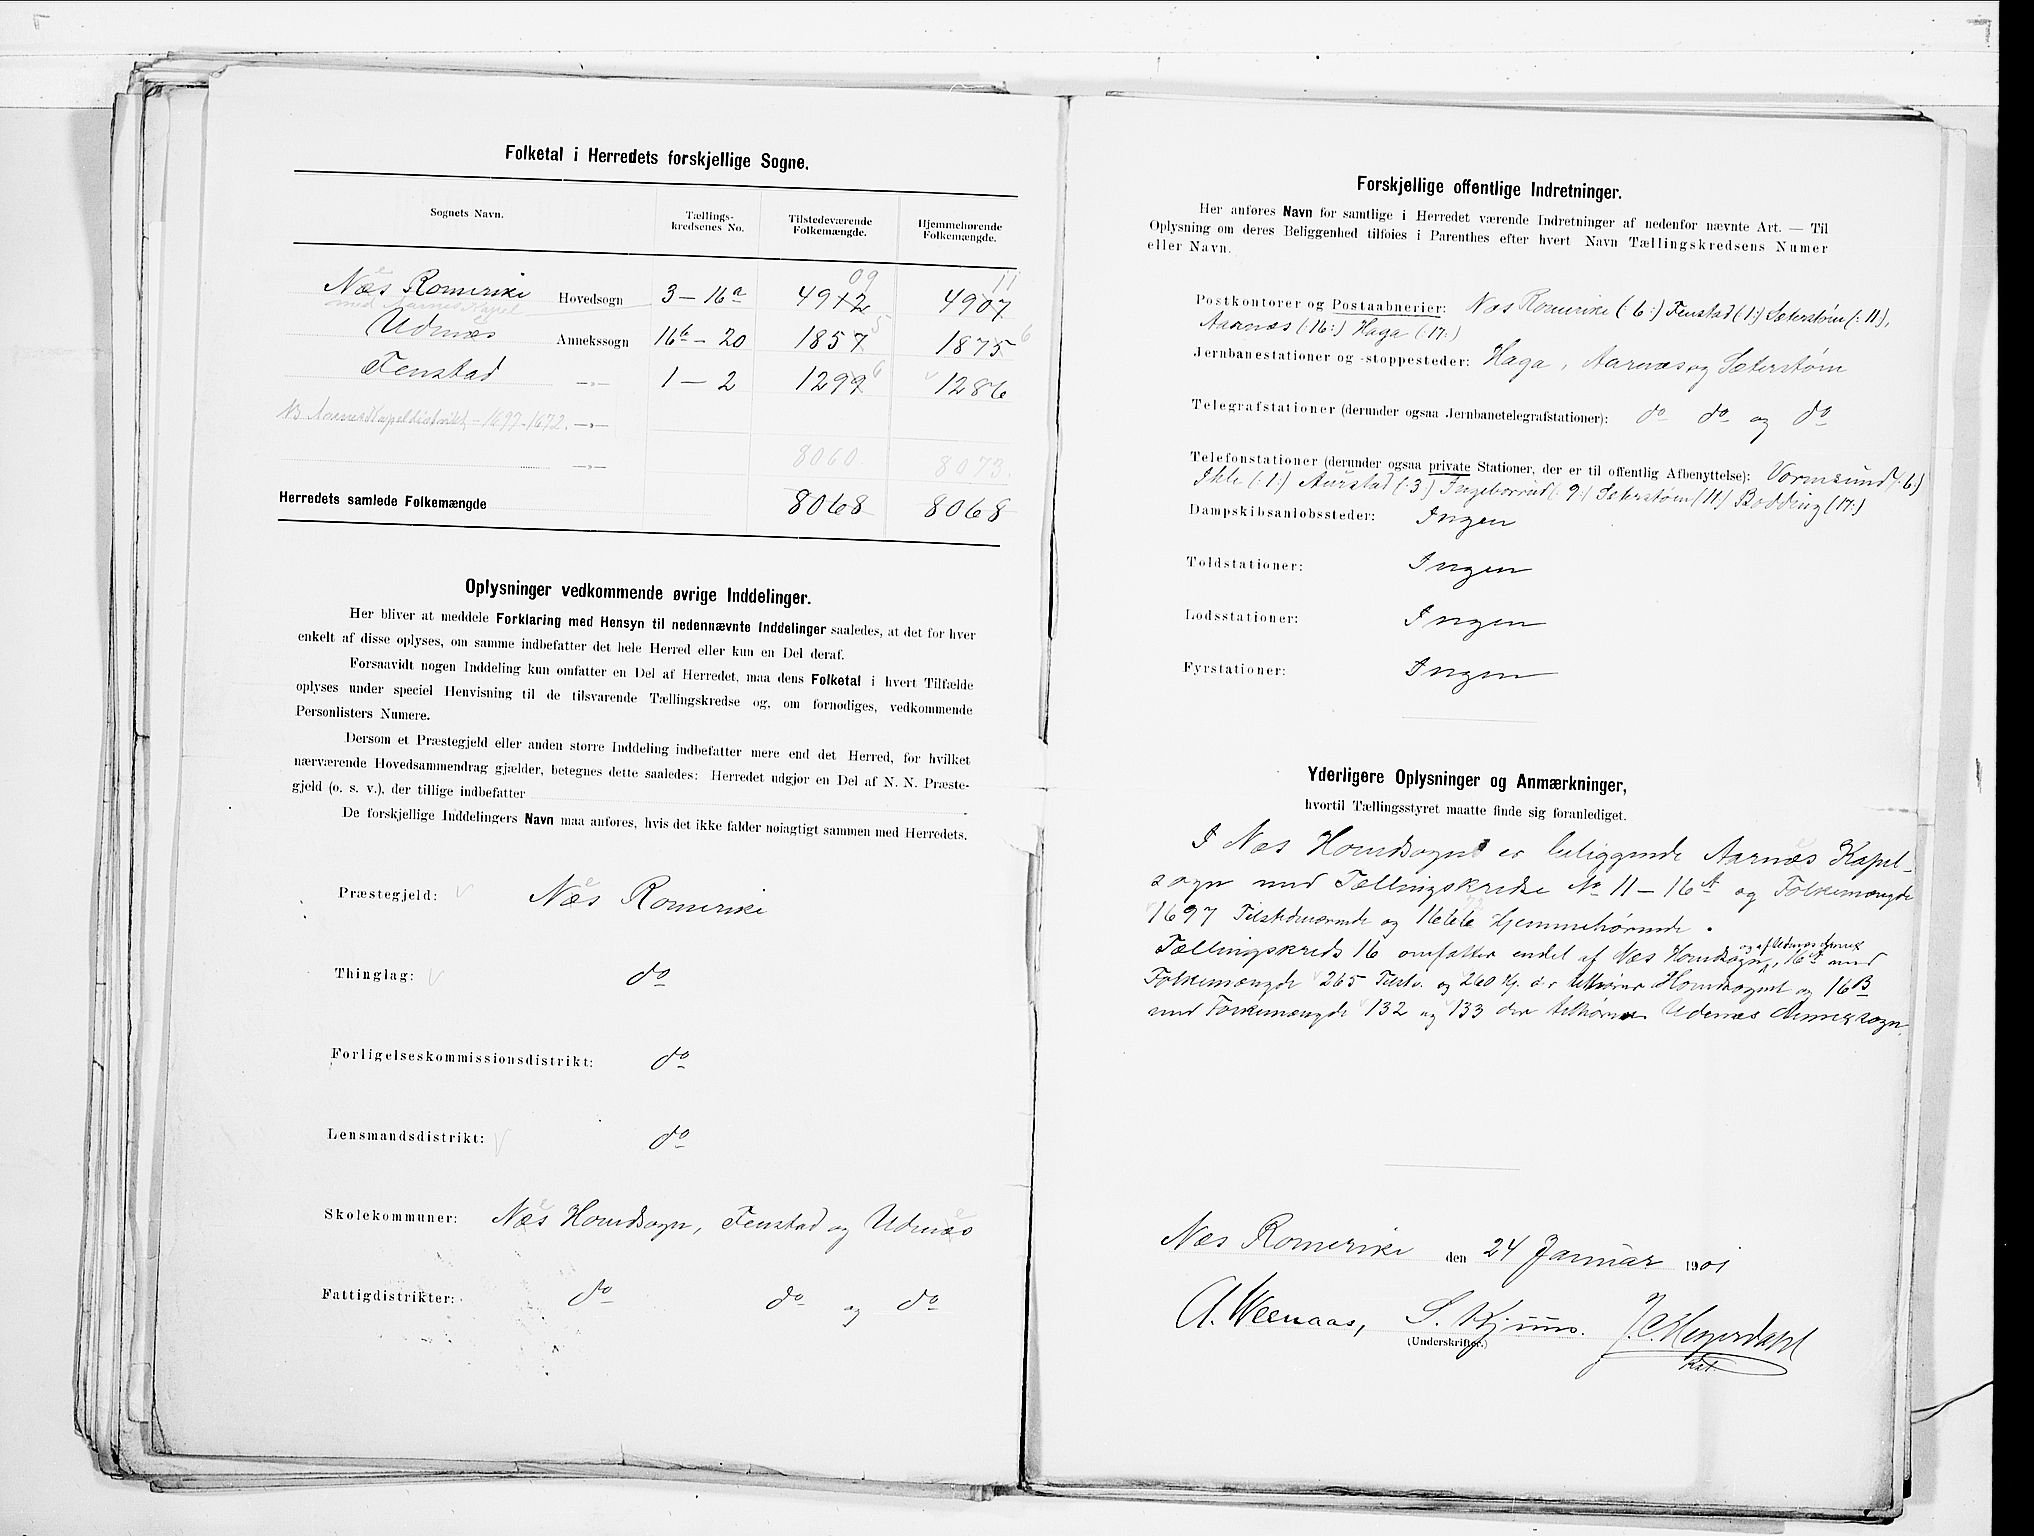 Folketal i Herredets forskjellige Sogne.
Sognets Navn. Tællings-kredsenes No. Tilstedeværende Folkemængde. Hjemmehørende Folkemængde.
09 11
Næs Romerike Hovedsogn 3 – 16a 4912 4907
med Aarnes Kapel
Udenæs Annekssogn 16b – 20 1857 5 1875 6
Fenstad —»— 1 – 2 1299 6 1286
NB Aarnes Kapeldistrikt – 1697 – 1672. —»—
—»— 8060 8073.
Herredets samlede Folkemængde 8068 8068
Oplysninger vedkommende øvrige Inddelinger.
Her bliver at meddele Forklaring med Hensyn til nedennævnte Inddelinger saaledes, at det for hver
enkelt af disse oplyses, om samme indbefatter det hele Herred eller kun en Del deraf.
Forsaavidt nogen Inddeling kun omfatter en Del af Herredet, maa dens Folketal i hvert Tilfælde
oplyses under speciel Henvisning til de tilsvarende Tællingskredse og, om fornødiges, vedkommende
Personlisters Numere.
Dersom et Præstegjeld eller anden større Inddeling indbefatter mere end det Herred, for hvilket
nærværende Hovedsammendrag gjælder, betegnes dette saaledes: Herredet udgjør en Del af N. N. Præste-
gjeld (o. s. v.), der tillige indbefatter
De forskjellige Inddelingers Navn maa anføres, hvis det ikke falder nøiagtigt sammen med Herredets.
Præstegjeld: Næs Romerike
Thinglag: do
Forligelseskommissionsdistrikt: do
Lensmandsdistrikt: do
Skolekommuner: Næs Hovedsogn, Fenstad og Udenæs
Fattigdistrikter: do do og do
Forskjellige offentlige Indretninger.
Her anføres Navn for samtlige i Herredet værende Indretninger af nedenfor nævnte Art. — Til
Oplysning om deres Beliggenhed tilføies i Parenthes efter hvert Navn Tællingskredsens Numer
eller Navn.
Postkontorer og Postaabnerier: Næs Romerike (:6:) Fenstad (:1:) Sæterstøm (:11),
Aarnæs (:16:) Haga (:17:)
Jernbanestationer og -stoppesteder: Haga, Aarnæs og Sæterstøm
Telegrafstationer (derunder ogsaa Jernbanetelegrafstationer): do do og do
Telefonstationer (derunder ogsaa private Stationer, der er til offentlig Afbenyttelse): Vormsund (:6:)
Ihle (:1:) Aurstad (:3:) Ingeborrud (:9:) Sæterstøm (11) Bodding (17:)
Dampskibsanløbssteder: Ingen
Toldstationer: Ingen
Lodsstationer: Ingen
Fyrstationer: Ingen
Yderligere Oplysninger og Anmærkninger,
hvortil Tællingsstyret maatte finde sig foranlediget.
I Næs Hovedsogn er beliggende Aarnæs Kapel-
sogn med Tællingskredse No 11 – 16A og Folkemængde
1697 Tilstedeværende og 1666 Hjemmehørende.
Tællingskreds 16 omfatter endel af Næs Hovedsogn og af Udenæs Annex, 16A med
Folkemængde 265 Tilstv. og 260 Hj. der tilhører Hovedsognet og 16B
med Folkemængde 132 og 133 der tilhører Udenæs Annexsogn.
Næs Romerike den 24 Januar 1901
A. Weenaas, S. Kjuus. J. C. Heyerdahl
(Underskrifter.)